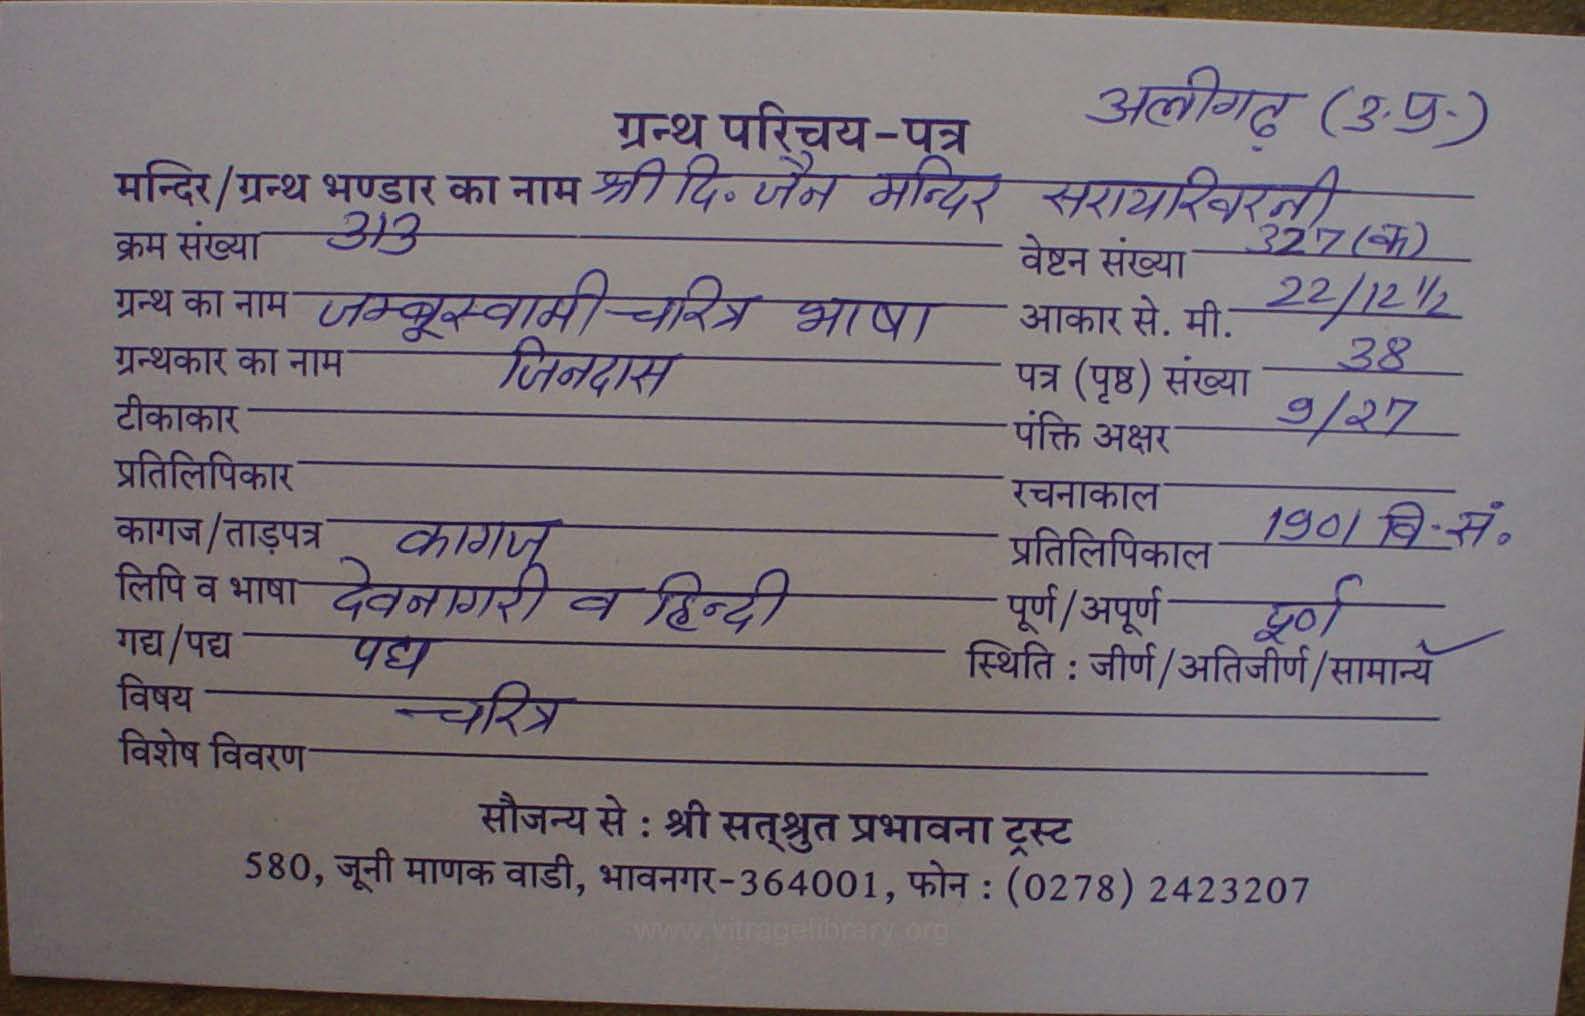 अलीगढ़ (उ.प्र.)
ग्रन्थ परिचय-पत्र
मन्दिर/ग्रन्थ भण्डार का नाम श्री दि. जैन मन्दिर सरायखिरनी
क्रम संख्या 313 वेष्टन संख्या 327 (क)
ग्रन्थ का नाम जम्बूस्वामी चरित्र भाषा आकार से. मी. 22/12 1/2
ग्रन्थकार का नाम जिनदास पत्र (पृष्ठ) संख्या 38
टीकाकार पंक्ति अक्षर 9/27
प्रतिलिपिकार रचनाकाल
कागज/ताड़पत्र कागज प्रतिलिपिकाल 1901 वि. सं.
लिपि व भाषा देवनागरी व हिन्दी पूर्ण/अपूर्ण पूर्ण
गद्य/पद्य पद्य स्थिति : जीर्ण/अतिजीर्ण/सामान्य ✓
विषय चरित्र
विशेष विवरण
सौजन्य से : श्री सत्श्रुत प्रभावना ट्रस्ट
580, जूनी माणक वाडी, भावनगर-364001, फोन : (0278) 2423207
www.vitragelibrary.org